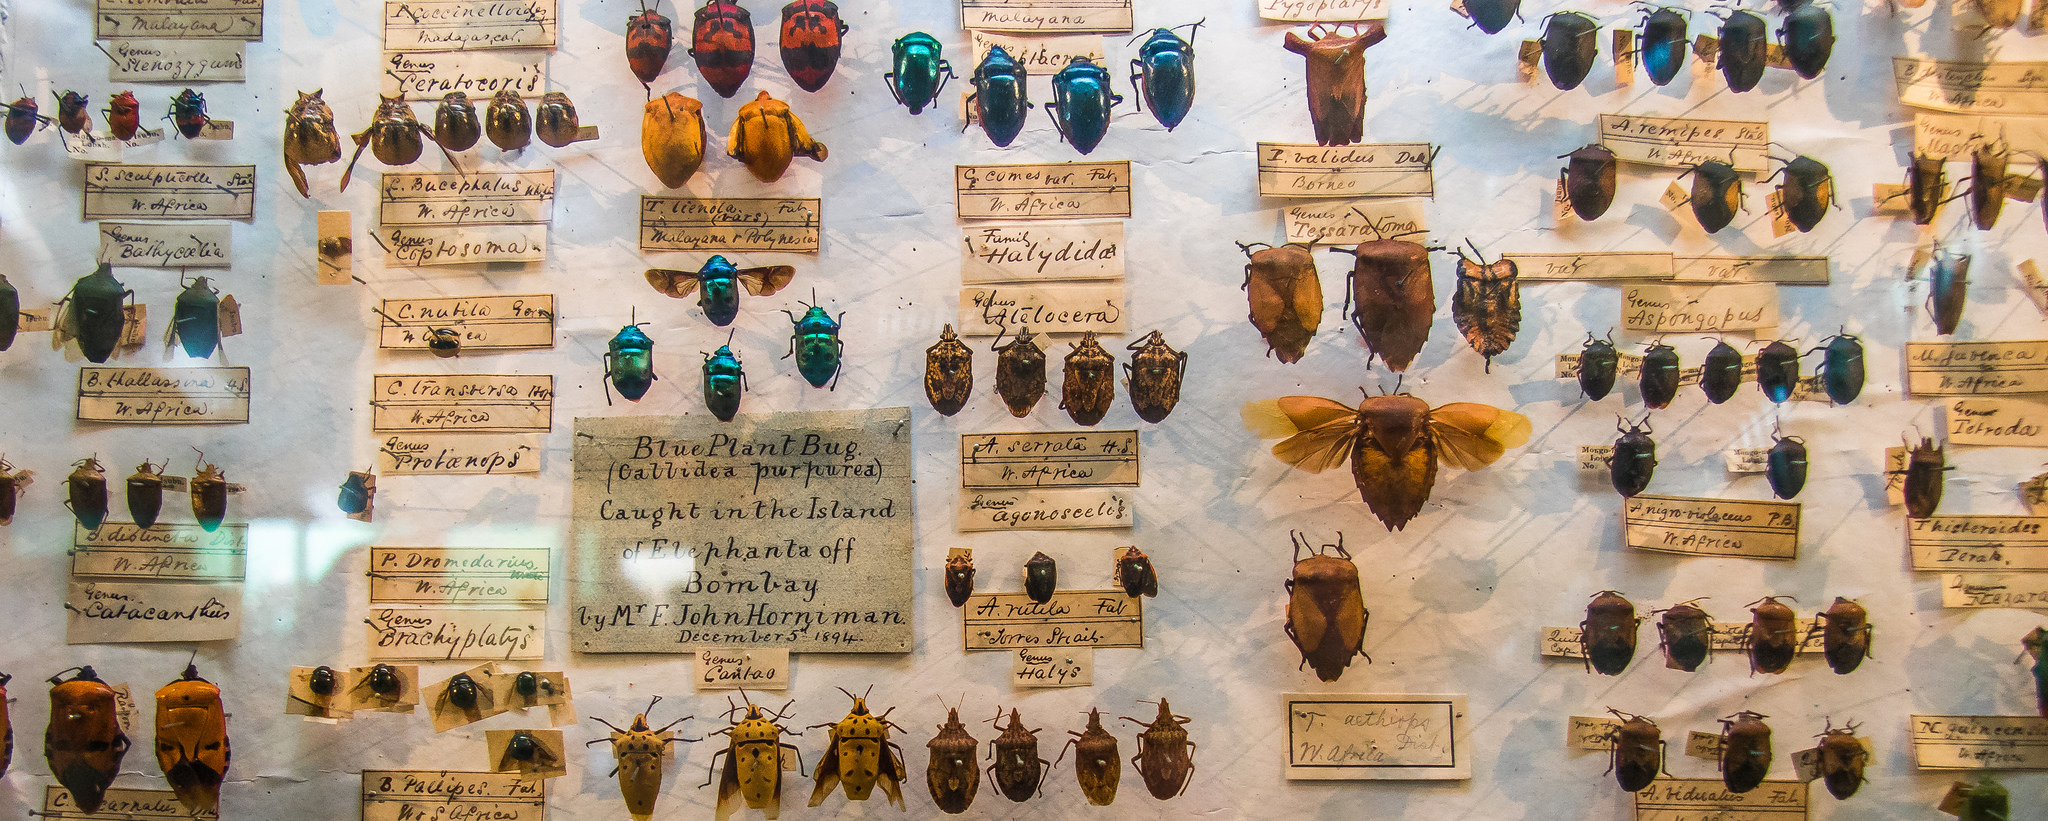 Malayana
Genus
Stenozygum
S. sculpturolle Stal
W. Africa
Genus
Bathycœlia
B. thallassina H.S
W. Africa.
B. distincta Dist
W. Africa
Genus.
Catacanthus
C. Fab
P. coccinelloides
Madagascar.
Genus
Ceratocoris
C. Bucephalus White
W. Africa
Genus
Coptosoma
C. nubila Germ
C. transversa Hop
W. Africa
Genus
Protænops
P. Dromedarius
W. Africa
Genus
Brachyplatys
B. Pallipes. Fab.
W & S Africa
T. lienola Fab.
(vars)
Malayana & Polynesia
Blue Plant Bug.
(Callidea purpurea)
Caught in the Island
of Elephanta off
Bombay
by Mr F. John Horniman.
December 5th 1894.
Genus
Cantao
malayana
Genus
C. comes var. Fab.
W. Africa
Family
Halydidæ
Genus
Atelocera
A. serrata H.S.
W. Africa
Genus
agonoscelis
A. rutila Fab
Torres Straits
Genus
Halys
Pygoplatys
P. validus Dall
Borneo
Genus
Tessaratoma
T. aethiops
W. Africa Dist.
A. remipes Stal
W. Africa
var
var
Genus
Aspongopus
Mongo-
Lobah.
No.
A. nigro-violaceus P.B.
W. Africa
A. viduatus Fab.
W. Africa
Genus
W. Africa
Genus
Tetroda
T histeroides
Perak.
W. Africa